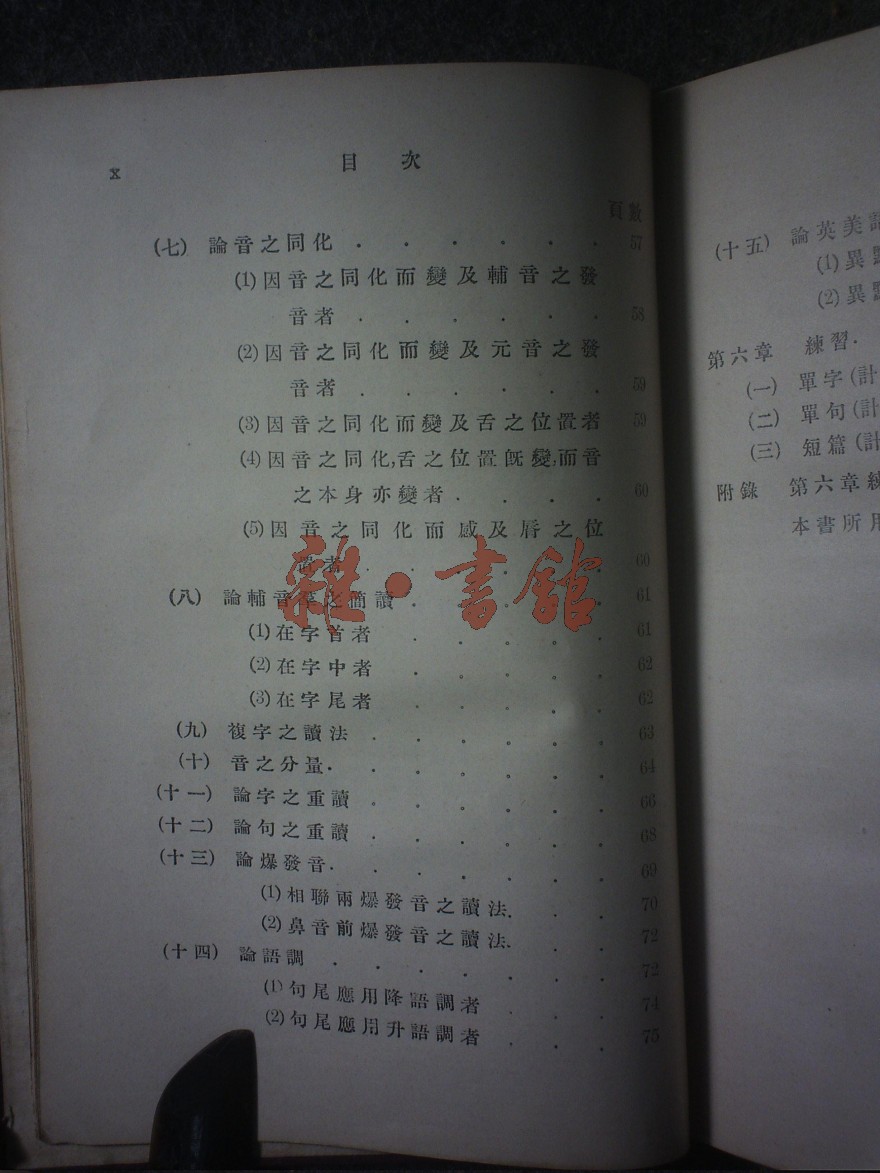 x
目 次
頁數
(七) 論音之同化 . . . . . . 57
(1) 因音之同化而變及輔音之發
音者 . . . . . . 58
(2) 因音之同化而變及元音之發
音者 . . . . . . 59
(3) 因音之同化而變及舌之位置者 59
(4) 因音之同化,舌之位置既變,而音
之本身亦變者 . . . . 60
(5) 因音之同化而感及唇之位
置者 . . . . . . 60
(八) 論輔音羣之簡讀 . . . . . 61
(1) 在字首者 . . . . . 61
(2) 在字中者 . . . . . 62
(3) 在字尾者 . . . . . 62
(九) 複字之讀法 . . . . . . 63
(十) 音之分量 . . . . . . 64
(十一) 論字之重讀 . . . . . . 66
(十二) 論句之重讀 . . . . . . 68
(十三) 論爆發音 . . . . . . 69
(1) 相聯兩爆發音之讀法 . . . 70
(2) 鼻音前爆發音之讀法 . . . 72
(十四) 論語調 . . . . . . . 72
(1) 句尾應用降語調者 . . . 74
(2) 句尾應用升語調者 . . . 75
雜·書館
(十五) 論英美
(1) 異
(2) 異
第六章 練習 .
(一) 單字 (計
(二) 單句 (計
(三) 短篇 (計
附錄 第六章練
本書所用